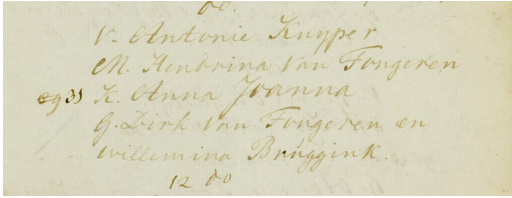 do.
V. Antonie Kuyper
M. Hendrina van Tongeren
K. Anna Joanna
G. Dirk van Tongeren en
willemina Brüggink.
12 do